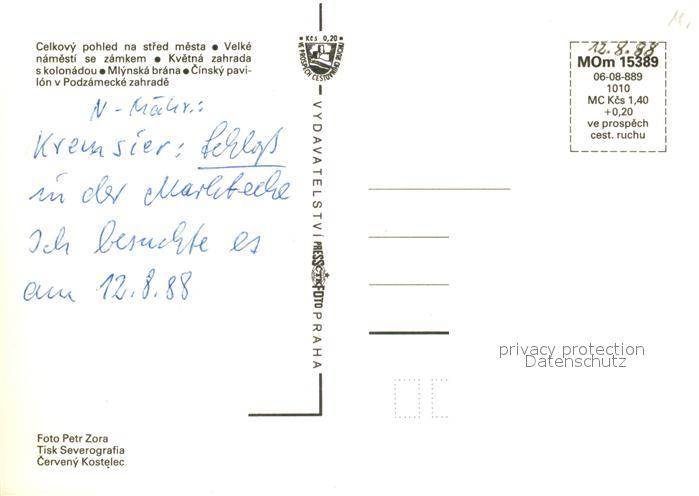 Celkový pohled na střed města ● Velké
náměstí se zámkem ● Květná zahrada
s kolonádou ● Mlýnská brána ● Čínský pavi-
lón v Podzámecké zahradě
N-Mähr.:
Kremsier: Schloß
in der Marktecke
Ich besuchte es
am 12.8.88
Foto Petr Zora
Tisk Severografia
Červený Kostelec
Kčs 0,20
VE PROSPĚCH CESTOVNÍHO RUCHU
VYDAVATELSTVÍ PRESSFOTO PRAHA
ČTK
M.
12.8.88
MOm 15389
06-08-889
1010
MC Kčs 1,40
+0,20
ve prospěch
cest. ruchu
privacy protection
Datenschutz